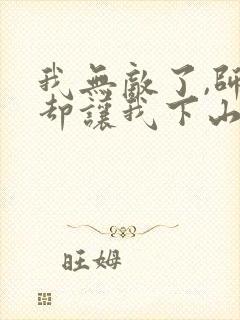 我無敵了,師
却讓我下山
旺姆